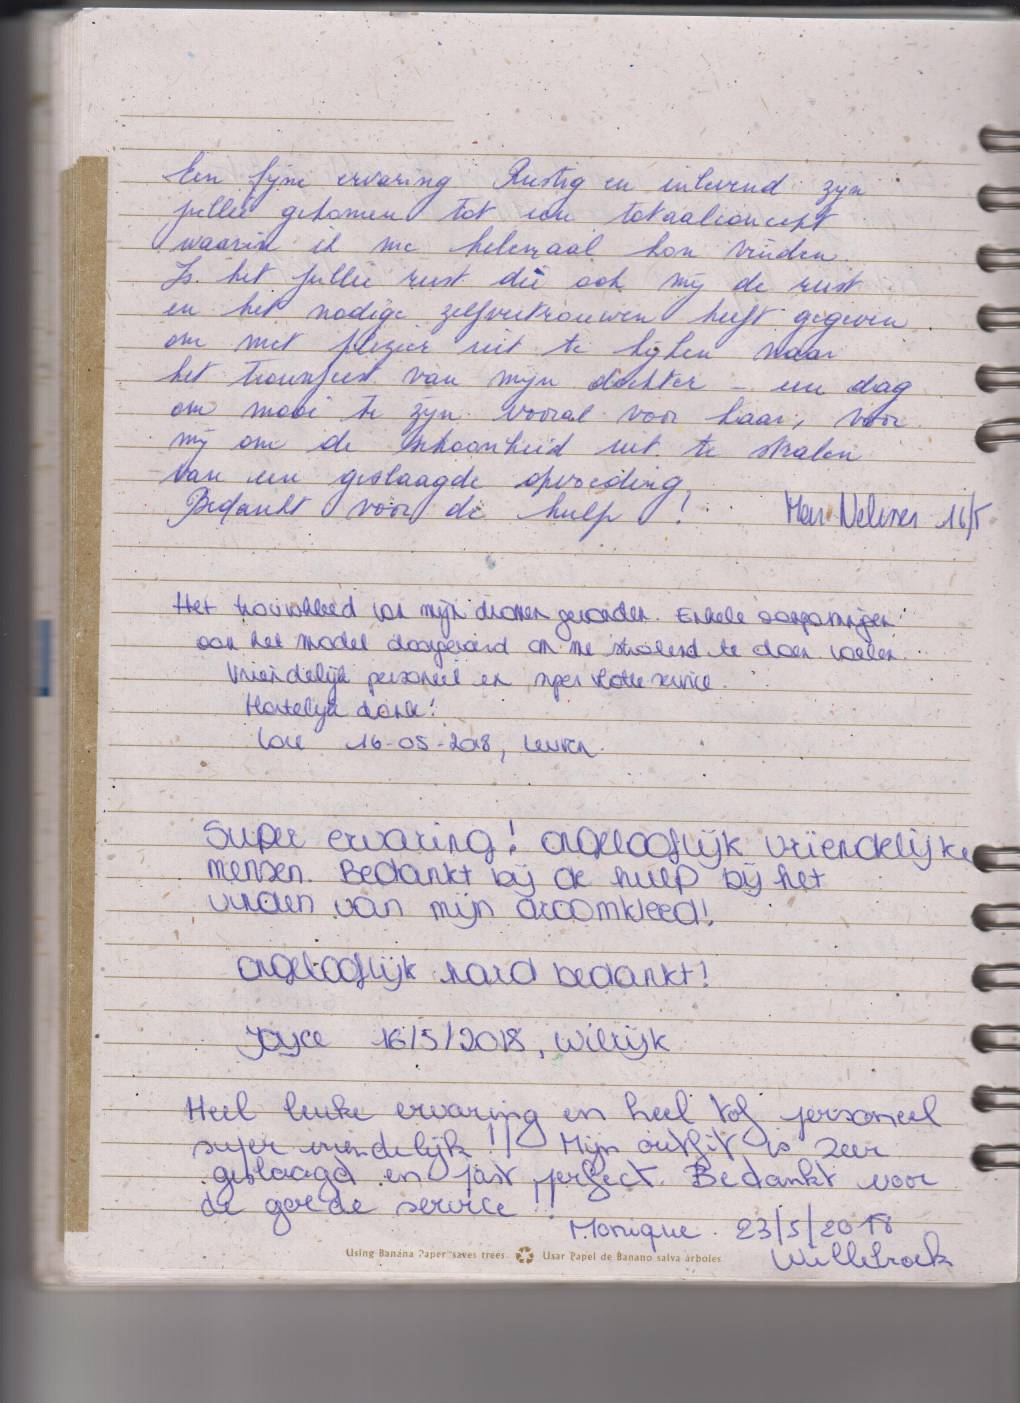 Een fijne ervaring Rustig en inlevend zijn
jullie gekomen tot een totaalconcept
waarin ik me helemaal kon vinden.
Is het jullie rust die ook mij de rust
en het nodige zelfvertrouwen heeft gegeven
om met plezier uit te kijken naar
het trouwfeest van mijn dochter - een dag
om mooi te zijn vooral voor haar, voor
mij om de schoonheid uit te stralen
van een geslaagde opvoeding.
Bedankt voor de hulp! 16/5
Het trouwkleed van mijn dromen gevonden. Enkele aanpassingen
aan het model doorgevoerd om me stralend te doen voelen.
Vriendelijk personeel en super vlotte service.
Hartelijk dank!
Lore 16-05-2018, Leuven.
Super ervaring! ongelooflijk vriendelijke
mensen. Bedankt bij de hulp bij het
vinden van mijn droomkleed!
ongelooflijk hard bedankt!
Joyce 16/5/2018, Wilrijk
Heel leuke ervaring en heel tof personeel
super vriendelijk!! Mijn outfit is zeer
geslaagd en past perfect. Bedankt voor
de goede service!!
Monique. 23/5/2018
Willebroek
Using Banana Paper saves trees Usar Papel de Banano salva árboles